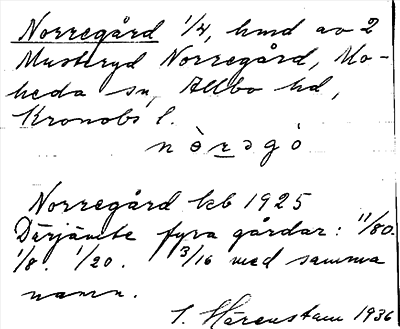 Norregård 1/4, hmd av 2
Musteryd Norregård, Mo-
heda sn, Allbo hd,
Kronobs l.
nòrəgò
Norregård kb 1925
Därjämte fyra gårdar: 11/80.
1/8. 1/20. 13/16 med samma
namn.
Härenstam 1936